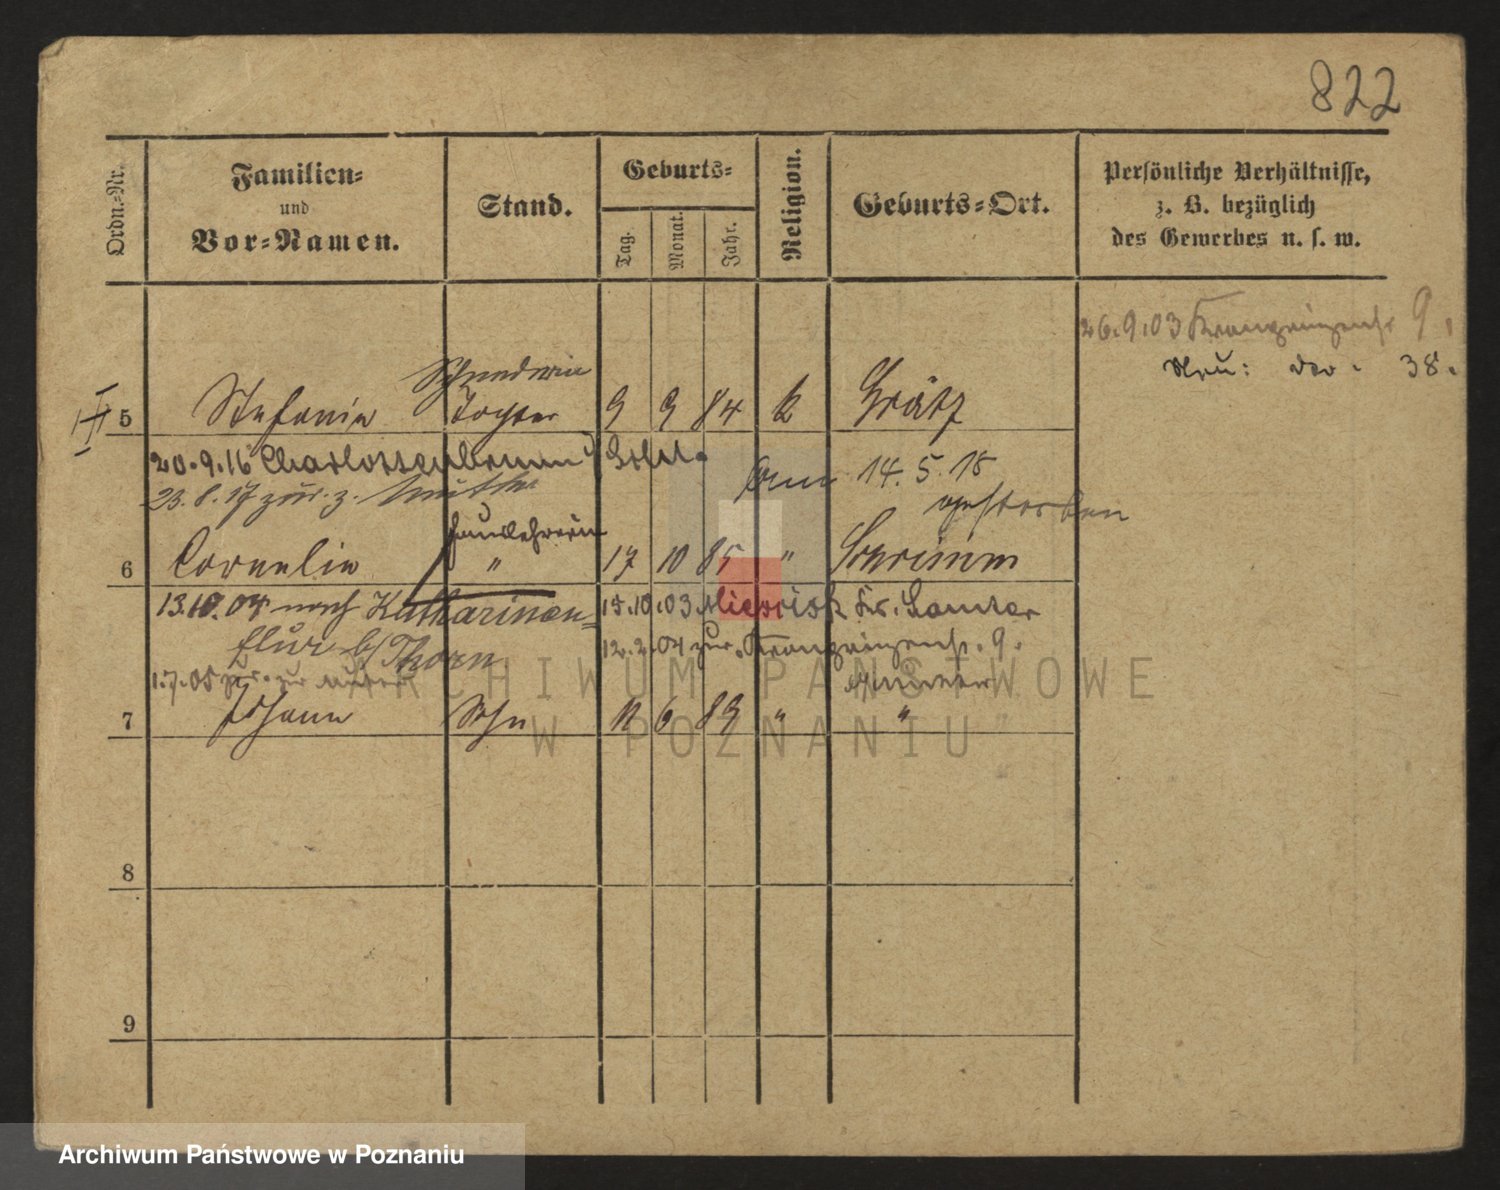 822
Ordn.-Nr.
Familien-
und
Vor-Namen.
Stand.
Geburts-
Tag.
Monat.
Jahr.
Religion.
Geburts-Ort.
Persönliche Verhältnisse,
z. B. bezüglich
des Gewerbes u. s. w.
26.9.03 9.
Neu: do. 38.
5 Stefania Tochter 9 9 84 k Grätz
20.9.16 Charlottenbrunn
am 14.5.18
23.8.17 zur. z. Mutter
gestorben
Hauslehrerin
6 Cornelia " 17 10 85 " Schrimm
13.10.04 nach Katharinen=
flur b/Thorn
15.10.03 Kr. Samter
12.2.04 zur. 9.
1.7.05 zur Mutter
7 Johann Sohn 11 6 89 " "
8
9
ARCHIWUM PAŃSTWOWE
W POZNANIU
Archiwum Państwowe w Poznaniu